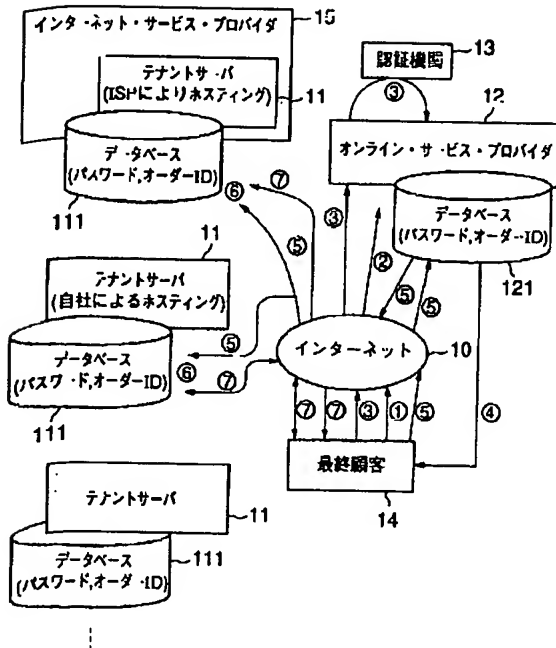 15
インターネット・サービス・プロバイダ
テナントサーバ
(ISPによりホスティング)
11
データベース
(パスワード,オーダーID)
111
認証機関
13
③
12
オンライン・サービス・プロバイダ
データベース
(パスワード,オーダーID)
121
⑦
⑥
⑤
③
②
⑤
⑤
11
テナントサーバ
(自社によるホスティング)
データベース
(パスワード,オーダーID)
111
⑤
⑥
⑦
インターネット
10
⑦
⑦
③
①
⑤
④
最終顧客
14
テナントサーバ
11
データベース
(パスワード,オーダーID)
111